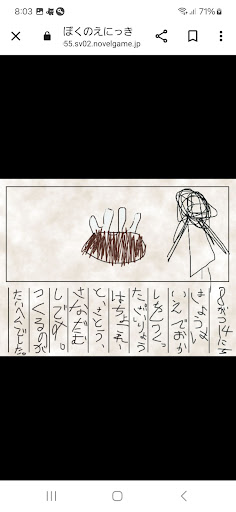 8:03
71%
ぼくのえにっき
55.sv02.novelgame.jp
8がつ4にち
きょうは
いえでおか
しをつくっ
た。ざいりょう
はちょこれー
と、さとう、
さなだむ
しです。
つくるのが
たいへんでした。